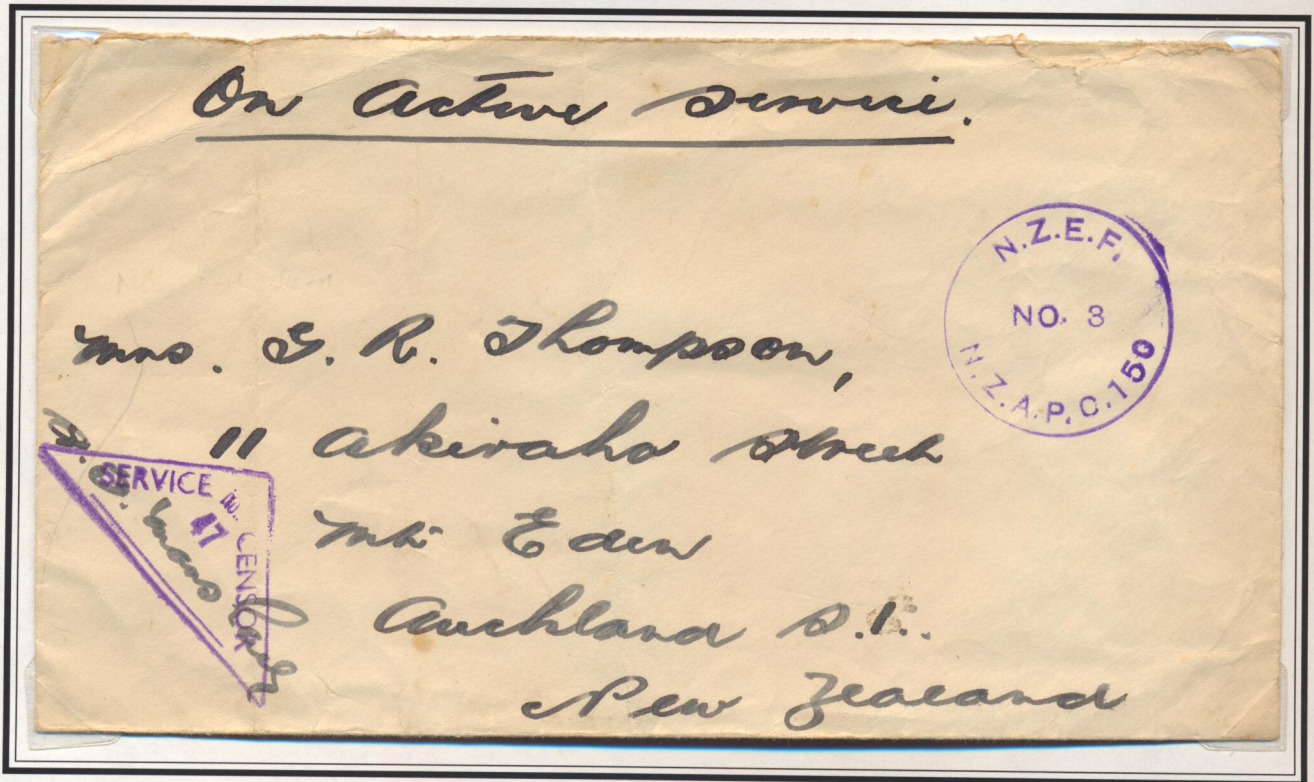 On Active Service.
N.Z.E.F.
NO. 3
N.Z.A.P.O. 150
Mrs. G. R. Thompson,
11 Akiraho Street
Mt. Eden
Auckland S.1..
New Zealand
SERVICE
No. 47
CENSOR